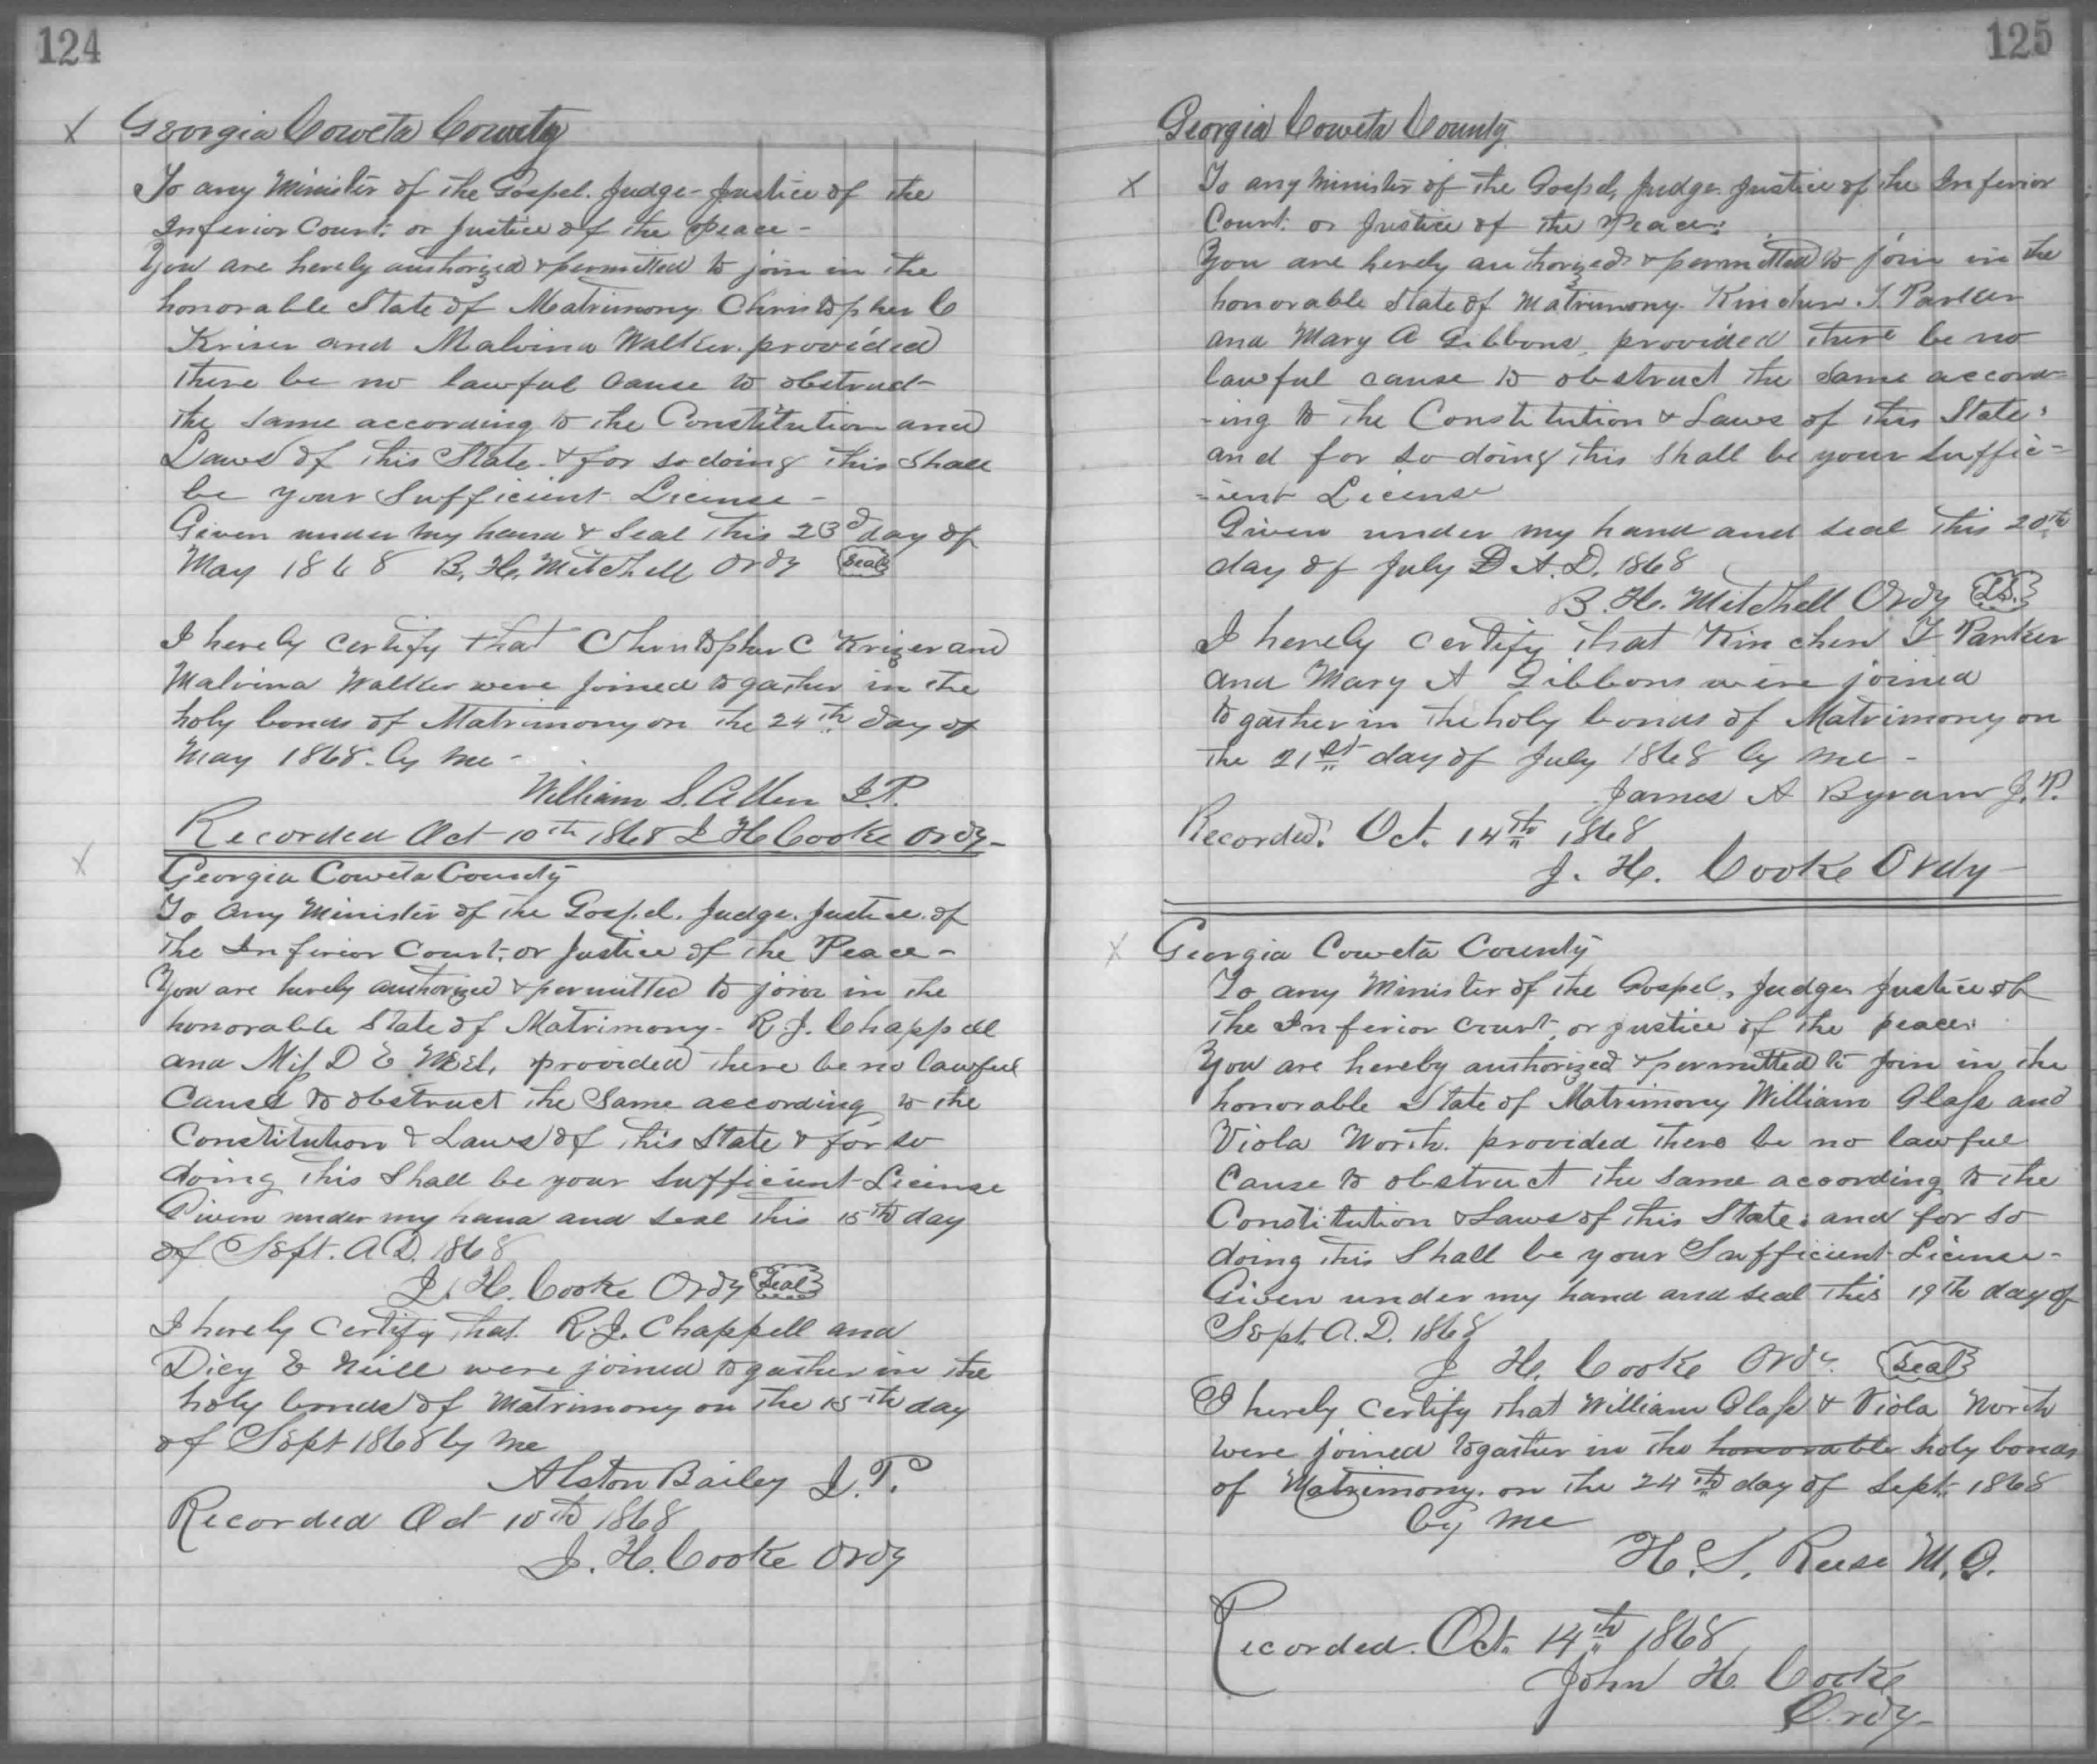 124
Georgia Coweta County
To any Minister of the Gospel. Judge - Justice of the
Inferior Court: or Justice of the Peace -
You are herely authorized & permitted to join in the
honorable State of Matrimony Christopher C
Kriser and Malvina Walker. provided
there be no lawful Cause to obstruct
the same according to the Constitution and
Laws of this State - & for so doing this shall
be your Sufficient License -
Given under my hand & Seal this 23d day of
May 1868 B. H. Mitchell Ordy Seal
I herely Certify that Christopher C Krizer and
Malvina Walker were joined togather in the
holy bonds of Matrimony on the 24th day of
May 1868. by me -
William S. Allen J.P.
Recorded Oct 10th 1868 J H Cooke Ordy -
Georgia Coweta County
To any Minister of the Gospel. Judge. Justice of
the Inferior Court; or Justice of the Peace -
You are herely authorized & permitted to join in the
honorable State of Matrimony - R. J. Chappell
and Miss D E provided there be no lawful
Cause to obstruct the Same according to the
Constitution & Laws of this State & for so
doing this Shall be your Sufficient License
Given under my hand and seal this 15th day
of Sept. A.D. 1868
J. H. Cooke Ordy Seal
I herely Certify that R. J. Chappell and
Dicy E Neill were joined togather in the
holy bonds of Matrimony on the 15th day
of Sept 1868 by me
Alston Bailey J. P.
Recorded Oct 10th 1868
J. H. Cooke Ordy
125
Georgia Coweta County
To any Minister of the Gospel, Judge. Justice of the Inferior
Court: or Justice of the Peace:
You are herely authorized & permitted to join in the
honorable State of Matrimony. Kinchen T. Parker
and Mary A Gibbons, provided there be no
lawful cause to obstruct the same accord=
-ing to the Constitution & Laws of this State:
and for so doing this shall be your suffic=
=ient License
Given under my hand and seal this 20th
day of July D A. D. 1868
B. H. Mitchell Ordy L.S.
I herely certify that Kinchen T Parker
and Mary A Gibbons were joined
togather in the holy bonds of Matrimony on
the 21st day of July 1868 by me -
James A Byram J.P.
Recorded. Oct. 14th 1868
J. H. Cooke Ordy -
Georgia Coweta County
To any Minister of the Gospel, Judge, Justice of
the Inferior Court, or justice of the peace:
You are hereby authorized & permitted to join in the
honorable State of Matrimony William Glass and
Viola North. provided there be no lawful
Cause to obstruct the same according to the
Constitution & Laws of this State: and for so
doing this Shall be your Sufficient License -
Given under my hand and seal this 19th day of
Sept. A.D. 1868
J H. Cooke Ordy. Seal
I herely Certify that William Glass & Viola North
were joined togather in the honorable holy bonds
of Matrimony. on the 24th day of Sept. 1868
by me
H. S. Reese M. G.
Recorded. Oct. 14th 1868
John H. Cooke
Ordy -